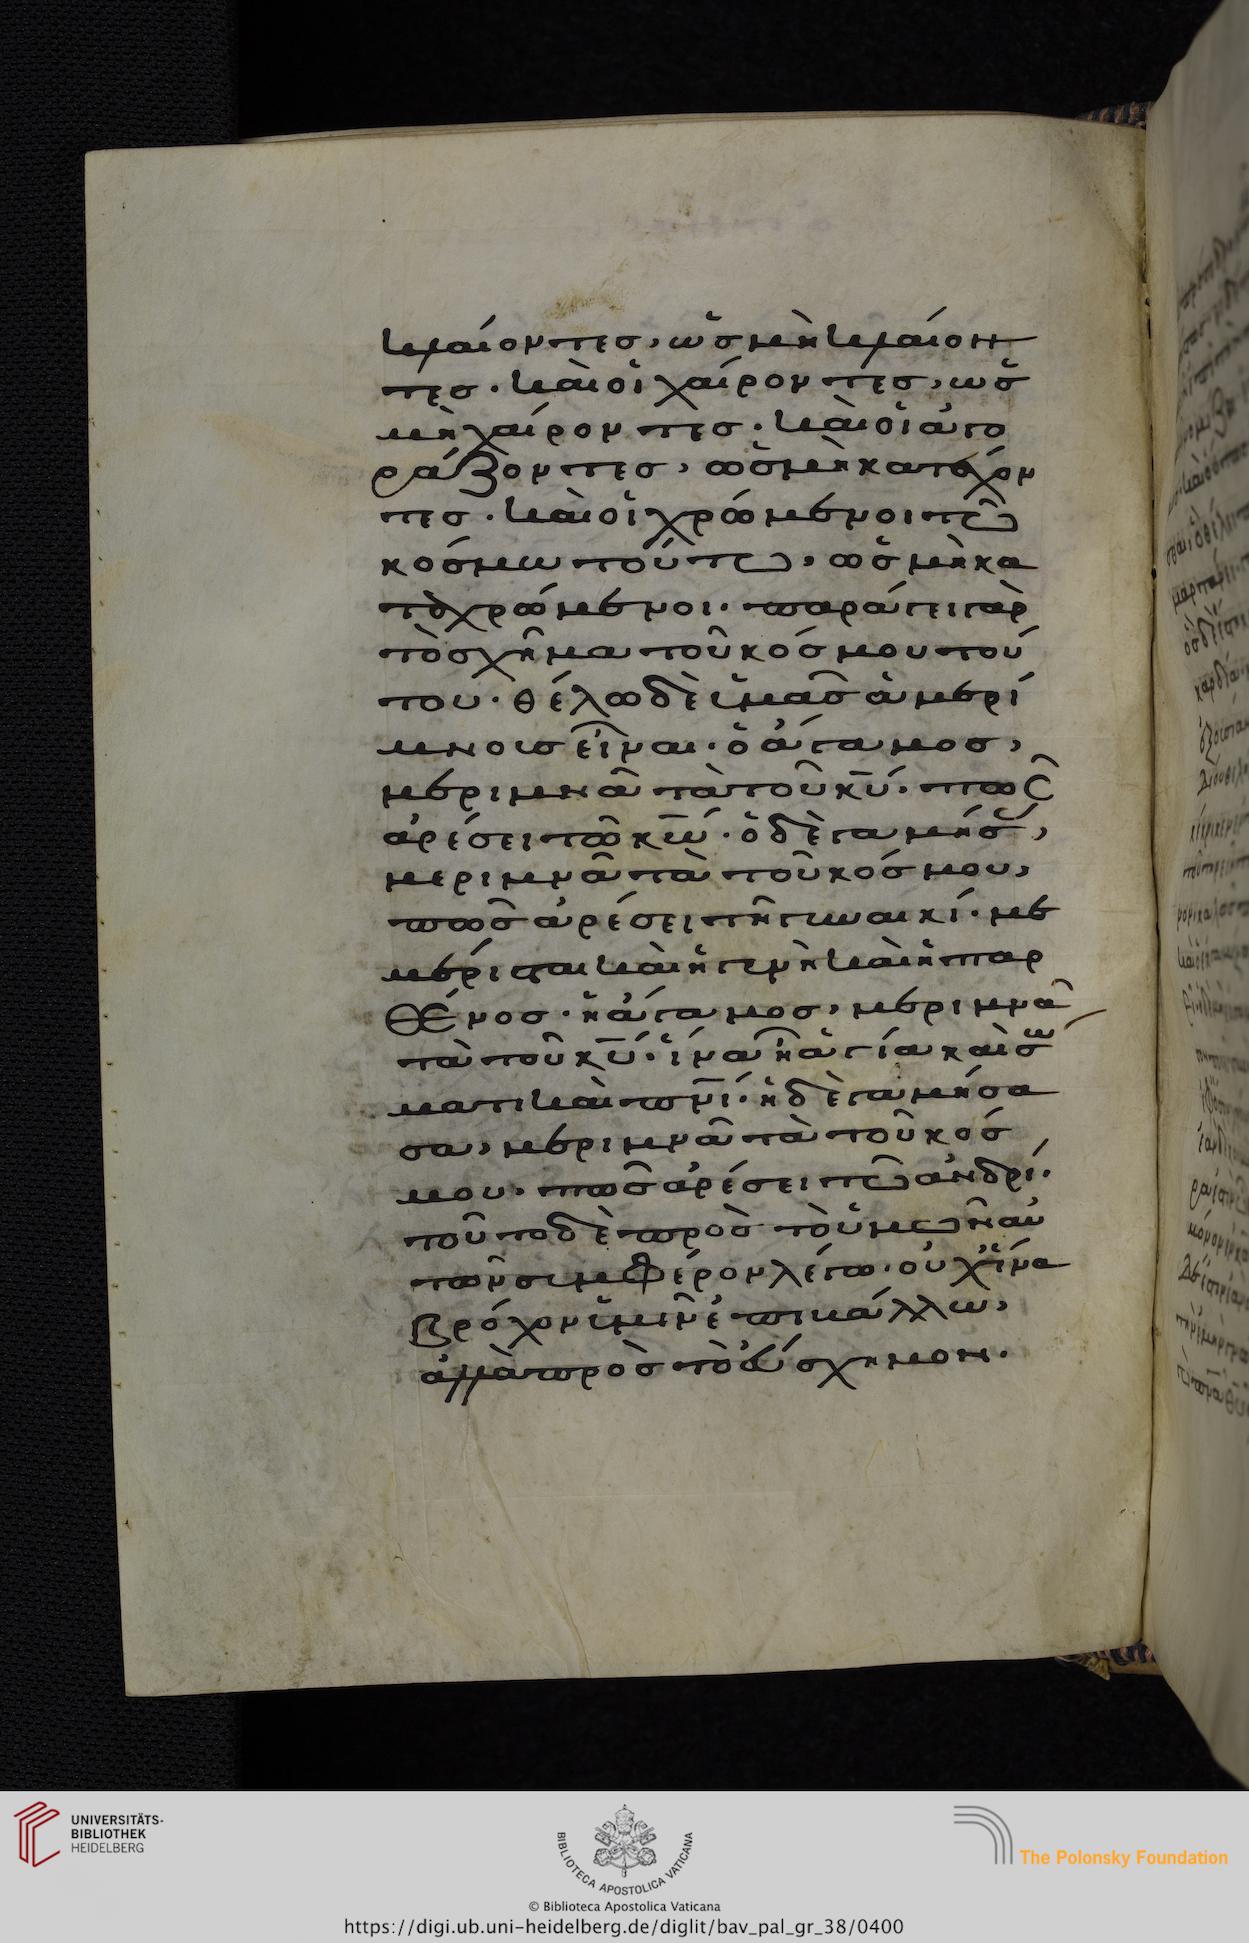 κλαίοντες, ὡς μὴ κλαίον
τες. καὶ οἱ χαίροντες, ὡς
μὴ χαίροντες. καὶ οἱ ἀγο
ράζοντες, ὡς μὴ κατέχον
τες. καὶ οἱ χρώμενοι τῶ
κόσμω τούτω, ὡς μὴ κα
τὸχρώμενοι. παράγει γὰρ
τὸ σχῆμα τοῦ κόσμου τού
του. θέλω δὲ ὑμᾶς ἀμερί
μνοις εἶναι. ὁ ἄγαμος,
μεριμνᾶ τὰ τοῦ κ̅υ̅. πῶς
ἀρέσει τῶ κ̅ω̅. ὁ δὲ γαμήσ,
μεριμνᾶ τὰ τοῦ κόσμου,
πῶς ἀρέσει τῆ γυναικί. με
μέρισται καὶ ἡ γυνὴ καὶ ἡ παρ
θένος. ἡ ἄγαμος, μεριμνᾶ
τὰ τοῦ κ̅υ̅. ἵνα ἦ ἁγία καὶ σω
ματι καὶ π̅ν̅ι̅. ἡ δὲ γαμήσα
σα, μεριμνᾶ τὰ τοῦ κόσ
μου. πῶς ἀρέσει τῶ ἀνδρί.
τοῦτο δὲ πρὸς τὸ ὑμῶν αὐ
τῶν συμφέρον λέγω. οὐχ ἵνα
βρόχον ὑμῖν ἐπικάλλω,
ἀλλὰ πρὸς τὸ εὔσχημον.
UNIVERSITÄTS-
BIBLIOTHEK
HEIDELBERG
BIBLIOTECA APOSTOLICA VATICANA
The Polonsky Foundation
© Biblioteca Apostolica Vaticana
https://digi.ub.uni-heidelberg.de/diglit/bav_pal_gr_38/0400